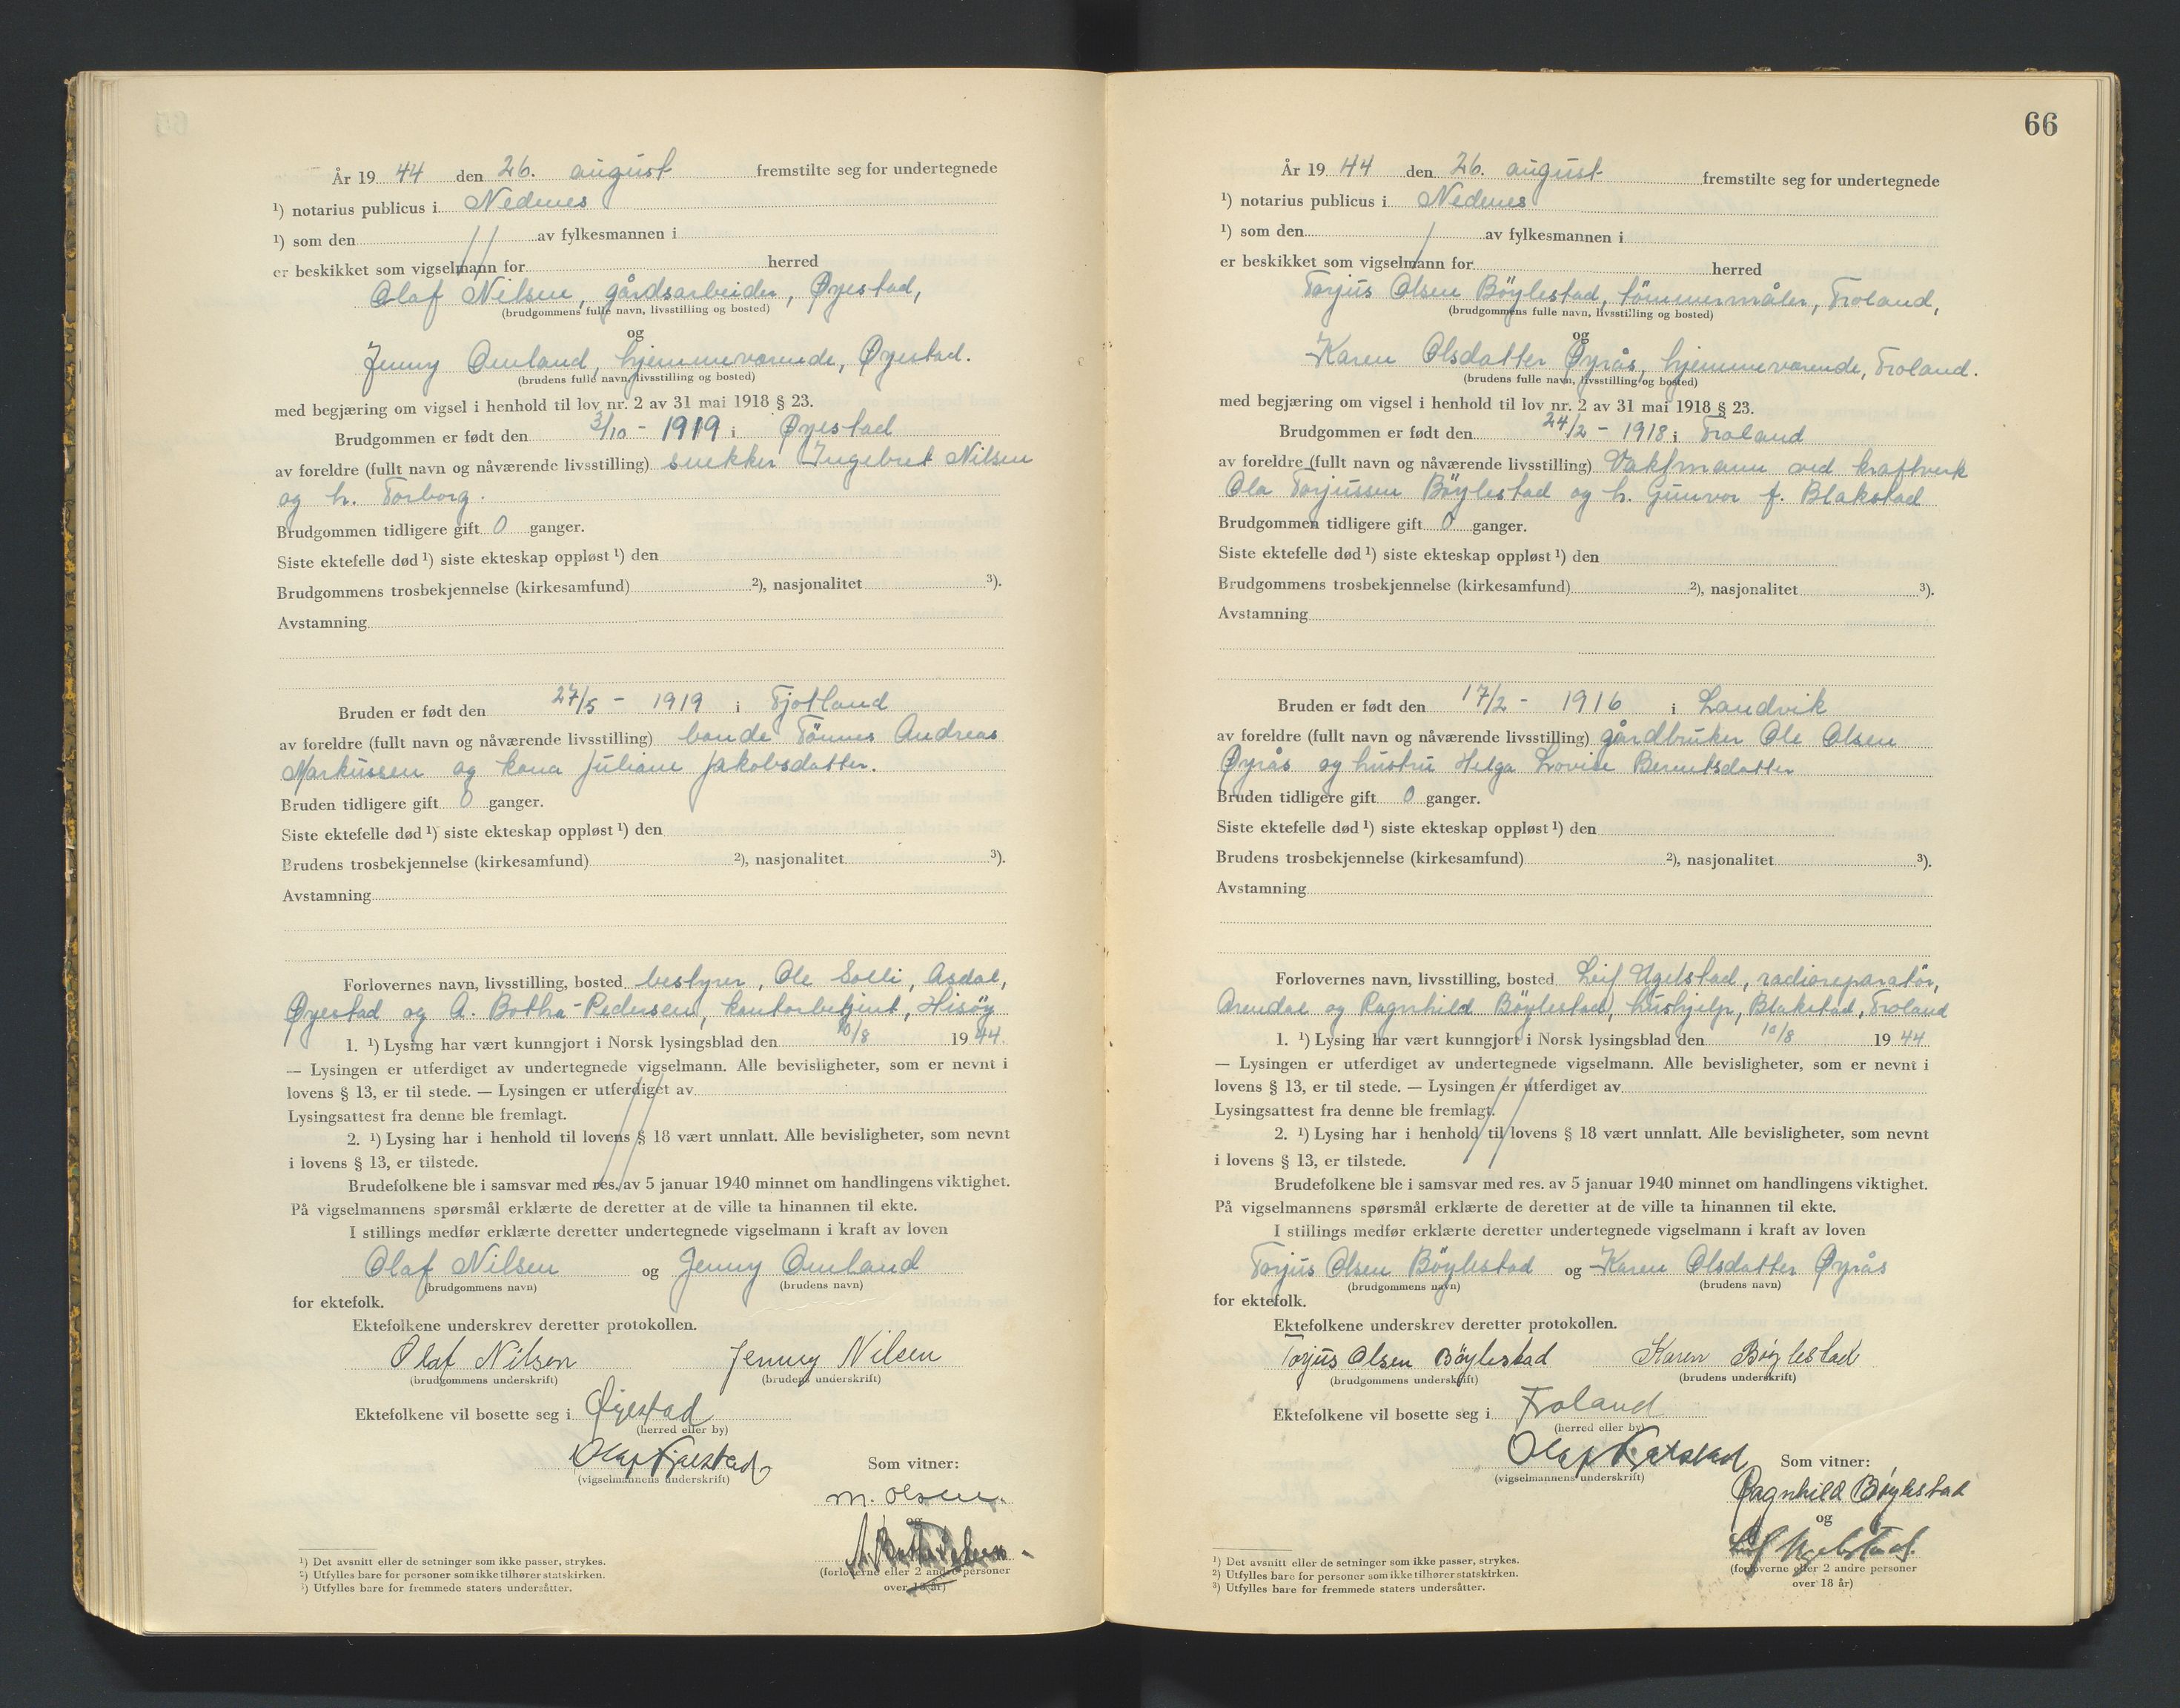 År 19 44 den 26. august fremstilte seg for undertegnede
¹) notarius publicus i Nedenes
¹) som den av fylkesmannen i
er beskikket som vigselmann for herred
Olaf Nilsen, gårdsarbeider, Øyestad,
(brudgommens fulle navn, livsstilling og bosted)
og
Jenny Omland, hjemmeværende, Øyestad.
(brudens fulle navn, livsstilling og bosted)
med begjæring om vigsel i henhold til lov nr. 2 av 31 mai 1918 § 23.
Brudgommen er født den 3/10 - 1919 i Øyestad
av foreldre (fullt navn og nåværende livsstilling) snekker Ingebret Nilsen
og h. Torborg.
Brudgommen tidligere gift 0 ganger.
Siste ektefelle død ¹) siste ekteskap oppløst ¹) den
Brudgommens trosbekjennelse (kirkesamfund) ²), nasjonalitet ³).
Avstamning
Bruden er født den 27/5 - 1919 i Fjotland
av foreldre (fullt navn og nåværende livsstilling) bonde Tönnes Andreas
Markussen og kona Juliane Jakobsdatter.
Bruden tidligere gift 0 ganger.
Siste ektefelle død ¹) siste ekteskap oppløst ¹) den
Brudens trosbekjennelse (kirkesamfund) ²), nasjonalitet ³).
Avstamning
Forlovernes navn, livsstilling, bosted bestyrer, Ole Solli, Asdal,
Øyestad og A. Botha-Pedersen, kontorbetjent, Hisöy
1. ¹) Lysing har vært kunngjort i Norsk lysingsblad den 10/8 19 44.
— Lysingen er utferdiget av undertegnede vigselmann. Alle bevisligheter, som er nevnt i
lovens § 13, er til stede. — Lysingen er utferdiget av
Lysingsattest fra denne ble fremlagt.
2. ¹) Lysing har i henhold til lovens § 18 vært unnlatt. Alle bevisligheter, som nevnt
i lovens § 13, er tilstede.
Brudefolkene ble i samsvar med res. av 5 januar 1940 minnet om handlingens viktighet.
På vigselmannens spørsmål erklærte de deretter at de ville ta hinannen til ekte.
I stillings medfør erklærte deretter undertegnede vigselmann i kraft av loven
Olaf Nilsen og Jenny Omland
(brudgommens navn) (brudens navn)
for ektefolk.
Ektefolkene underskrev deretter protokollen.
Olaf Nilsen Jenny Nilsen
(brudgommens underskrift) (brudens underskrift)
Ektefolkene vil bosette seg i Øyestad
(herred eller by)
(vigselmannens underskrift)
Som vitner:
M. Olsen.
og
(forloverne eller 2 andre personer
over 18 år)
¹) Det avsnitt eller de setninger som ikke passer, strykes.
²) Utfylles bare for personer som ikke tilhører statskirken.
³) Utfylles bare for fremmede staters undersåtter.
66
År 19 44 den 26. august fremstilte seg for undertegnede
¹) notarius publicus i Nedenes
¹) som den av fylkesmannen i
er beskikket som vigselmann for herred
Torjus Olsen Böylestad, tömmermåler, Froland,
(brudgommens fulle navn, livsstilling og bosted)
og
Karen Olsdatter Øyrås, hjemmeværende, Froland.
(brudens fulle navn, livsstilling og bosted)
med begjæring om vigsel i henhold til lov nr. 2 av 31 mai 1918 § 23.
Brudgommen er født den 24/2 - 1918 i Froland
av foreldre (fullt navn og nåværende livsstilling) Vaktmann ved kraftverk
Ola Torjussen Böylestad og h. Gunvor f. Blakstad
Brudgommen tidligere gift 0 ganger.
Siste ektefelle død ¹) siste ekteskap oppløst ¹) den
Brudgommens trosbekjennelse (kirkesamfund) ²), nasjonalitet ³).
Avstamning
Bruden er født den 17/2 - 1916 i Landvik
av foreldre (fullt navn og nåværende livsstilling) gårdbruker Ole Olsen
Øyrås og hustru Helga Lovise Berntsdatter
Bruden tidligere gift 0 ganger.
Siste ektefelle død ¹) siste ekteskap oppløst ¹) den
Brudens trosbekjennelse (kirkesamfund) ²), nasjonalitet ³).
Avstamning
Forlovernes navn, livsstilling, bosted Leif Ugelstad, radioreparatör,
Arendal og Ragnhild Böylestad, hushjelp, Blakstad, Froland
1. ¹) Lysing har vært kunngjort i Norsk lysingsblad den 10/8 19 44
— Lysingen er utferdiget av undertegnede vigselmann. Alle bevisligheter, som er nevnt i
lovens § 13, er til stede. — Lysingen er utferdiget av
Lysingsattest fra denne ble fremlagt.
2. ¹) Lysing har i henhold til lovens § 18 vært unnlatt. Alle bevisligheter, som nevnt
i lovens § 13, er tilstede.
Brudefolkene ble i samsvar med res. av 5 januar 1940 minnet om handlingens viktighet.
På vigselmannens spørsmål erklærte de deretter at de ville ta hinannen til ekte.
I stillings medfør erklærte deretter undertegnede vigselmann i kraft av loven
Torjus Olsen Böylestad og Karen Olsdatter Øyrås
(brudgommens navn) (brudens navn)
for ektefolk.
Ektefolkene underskrev deretter protokollen.
Torjus Olsen Böylestad Karen Bøylestad
(brudgommens underskrift) (brudens underskrift)
Ektefolkene vil bosette seg i Froland
(herred eller by)
(vigselmannens underskrift)
Som vitner:
Ragnhild Bøylestad
og
Leif Ugelstad.
(forloverne eller 2 andre personer
over 18 år)
¹) Det avsnitt eller de setninger som ikke passer, strykes.
²) Utfylles bare for personer som ikke tilhører statskirken.
³) Utfylles bare for fremmede staters undersåtter.